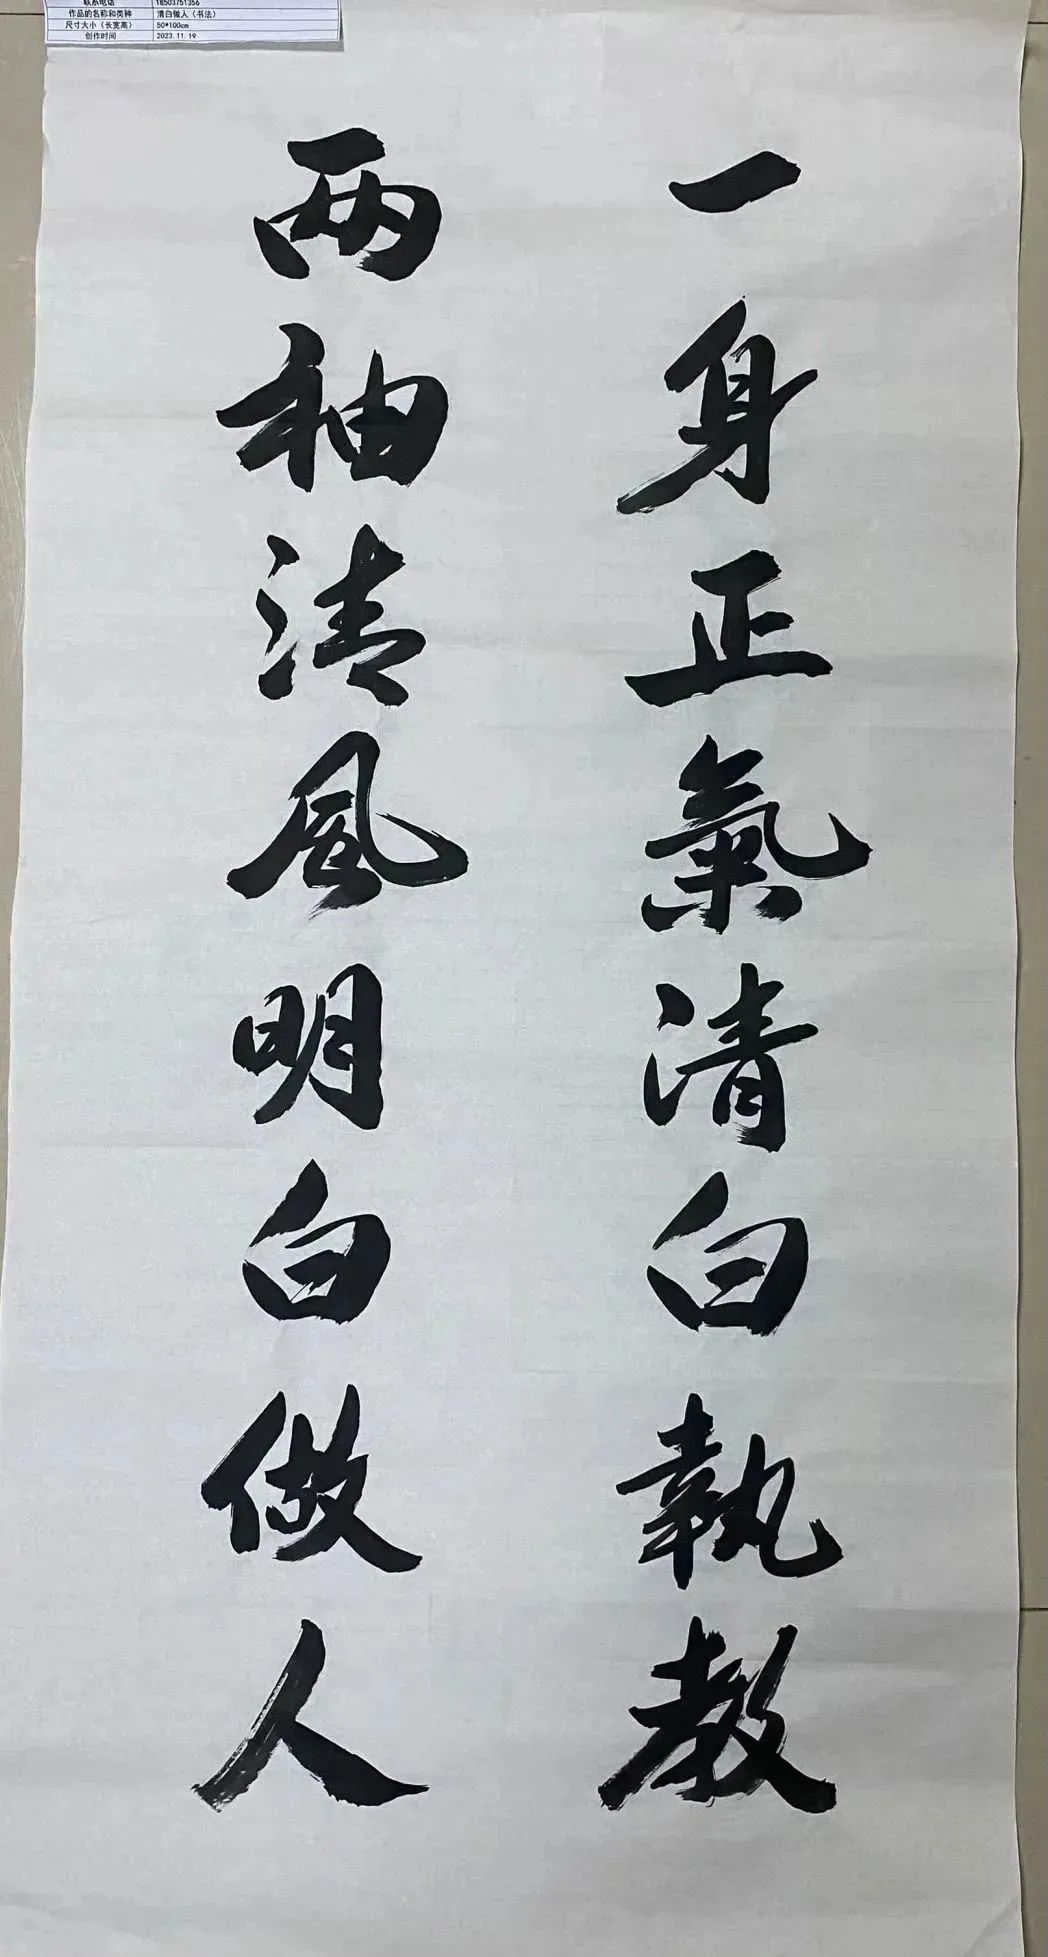 联系电话 18503751356
作品的名称和类种 清白做人（书法）
尺寸大小（长宽高） 50*100cm
创作时间 2023.11.19
一身正氣清白執教
两袖清风明白做人